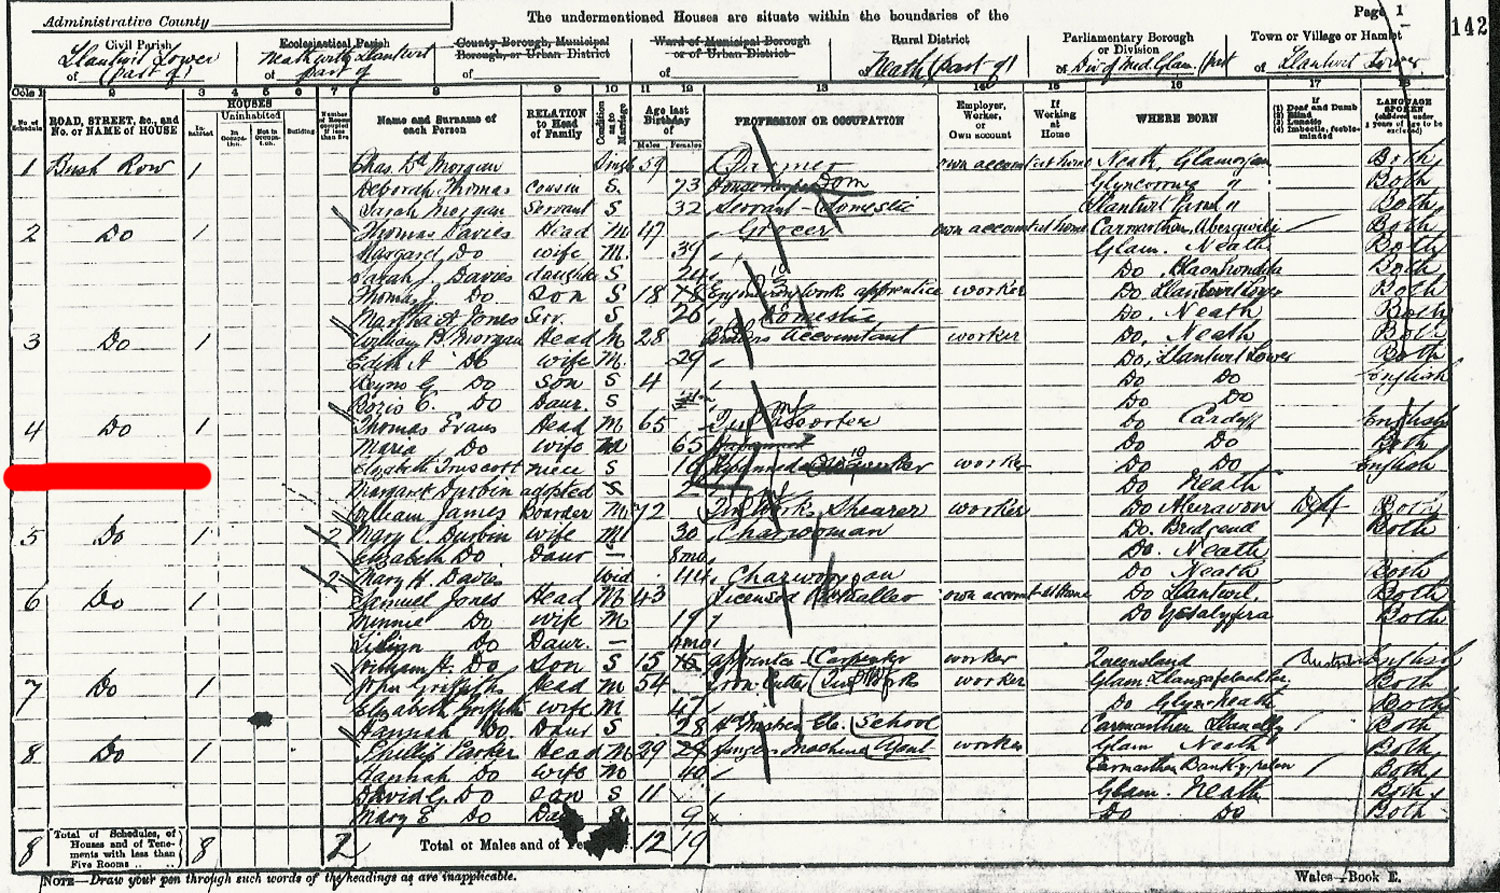 Administrative County
The undermentioned Houses are situate within the boundaries of the
Page 1
142
Civil Parish
of Llantwit Lower (part of)
Ecclesiastical Parish
of Neath with Llantwit part of
County Borough, Municipal Borough, or Urban District
of
Ward of Municipal Borough or of Urban District
of
Rural District
of Neath (part of)
Parliamentary Borough or Division
of Div of Mid. Glam. (part
Town or Village or Hamlet
of Llantwit Lower
Cols 1 2 3 4 5 6 7 8 9 10 11 12 13 14 15 16 17 18
No. of Schedule
ROAD, STREET, &c., and No. or NAME of HOUSE
HOUSES
Inhabited
Uninhabited
In Occupation.
Not in Occupation.
Building
Number of Rooms occupied if less than five
Name and Surname of each Person
RELATION to Head of Family
Condition as to Marriage
Age last Birthday of
Males Females
PROFESSION OR OCCUPATION
Employer, Worker, or Own account
If Working at Home
WHERE BORN
If (1) Deaf and Dumb (2) Blind (3) Lunatic (4) Imbecile, feeble-minded
LANGUAGE SPOKEN
1 Bush Row 1 Chas. Ed. Morgan Single 59 own account at home Neath, Glamorgan Both
Deborah Thomas cousin S. 73 Dom Glyncorrwg " Both
Sarah Morgan Servant S 32 Servant - Domestic Llantwit " Both
2 Do 1 Thomas Davies Head M 47 Grocer own account at home Carmarthen, Abergwili Both
Margaret Do wife M. 39 Glam. Neath Both
Sarah J. Davies daughter S 24 Do Blaenrhondda Both
Thomas J. Do Son S 18 Engineering works apprentice worker Do Llantwit Lower Both
Martha A Jones Serv. S 26 Domestic Do. Neath Both
3 Do 1 William B. Morgan Head M 28 accountant worker Do, Neath Both
Edith A Do wife M. 29 Do, Llantwit Lower Both
Reyno G. Do Son S 4 Do Do English
Doris E. Do Daur. S Do Do
4 Do 1 Thomas Evans Head M 65 Tin assorter Do Cardiff English
Maria Do wife M 65 Do Do Both
Elizabeth Truscott niece S 19 worker Do Do English
Margaret Durbin adopted S 2 Do Neath
William James Boarder M 72 Tin Works Shearer worker Do Aberavon Deaf Both
5 Do 1 2 Mary C. Durbin wife M 30 Charwoman Do. Bridgend Both
Elizabeth Do Daur — 8mo Do. Neath
2 Mary H. Davies Wid 44 Charwoman Do Neath Both
6 Do 1 Samuel Jones Head M 43 Licensed Victualler own account at Home Do Llantwit, Both
Minnie Do wife M 19 Do Ystalyfera Both
Lilian Do Daur. —
William H. Do Son S 15 apprentice Carpenter worker Queensland Australia English
7 Do 1 John Griffiths Head M 54 Iron-Cutter Tin Works worker Glam. Llangafelach Both
Elizabeth Griffiths wife M 47 Do Glyn-Neath Both
Hannah Do. Daur S 28 School Carmarthen Llanelly Both
8 Do 1 Phillip Parker Head M 29 Singer Machine Agent worker Glam Neath Both
Hannah Do wife M 40 Carmarthen Both
David G. Do son S 11 Glam. Neath Both
Mary E Do 9 Do Do Both
8 Total of Schedules, of Houses and of Tenements with less than Five Rooms 8 2 Total of Males and of 12 19
NOTE—Draw your pen through such words of the headings as are inapplicable.
Wales—Book E.